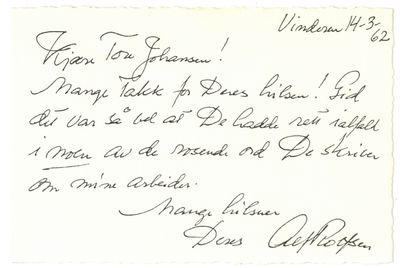 Vinderen 14-3-62
Kjære Tore Johansen!
Mange takk for Deres hilsen! Gid
det var så vel at De hadde rett i alfall
i noen av de rosende ord De skriver
om mine arbeider.
Mange hilsner
Deres Alf Prøysen